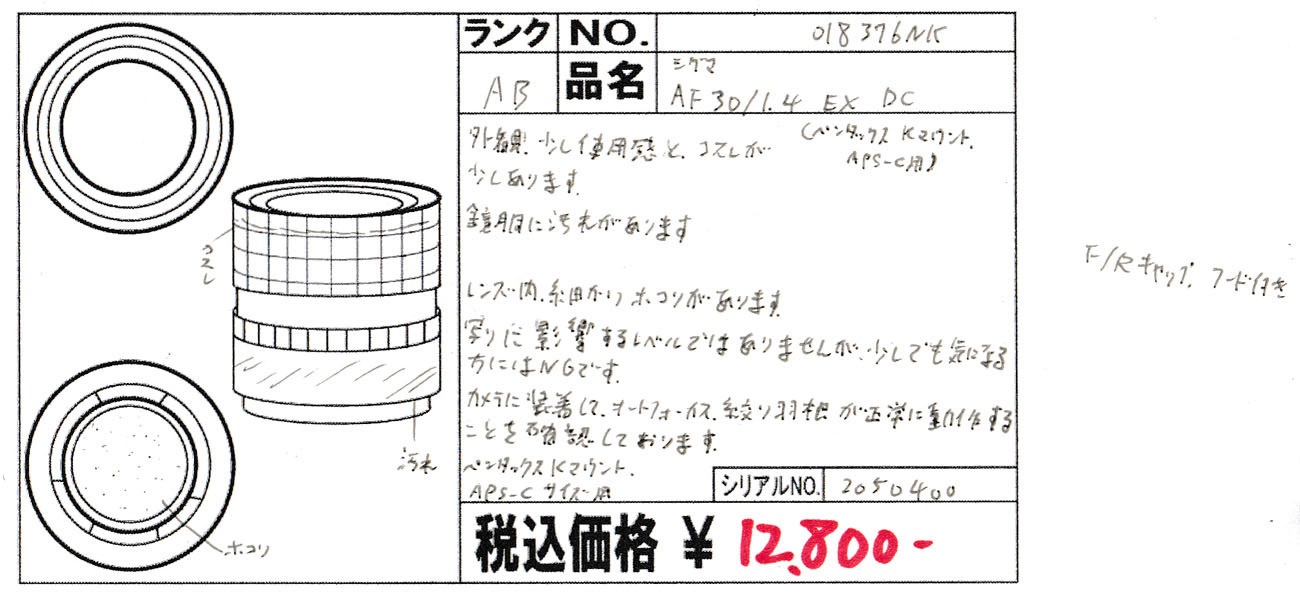 ランク NO. 018376NK
AB 品名 シグマ
AF 30/1.4 EX DC
(ペンタックス Kマウント.
APS-C用)
外観、少し使用感と、コスレが
少しあります.
鏡胴に汚れがあります
レンズ内、細かいホコリがあります.
写りに影響するレベルではありませんが、少しでも気になる
方にはNGです.
カメラに装着して、オートフォーカス、絞り羽根が正常に動作する
ことを確認しております.
ペンタックス Kマウント.
APS-C サイズ用
シリアルNO. 2050400
税込価格 ¥ 12,800-
コスレ
汚れ
ホコリ
F/Rキャップ、フード付き